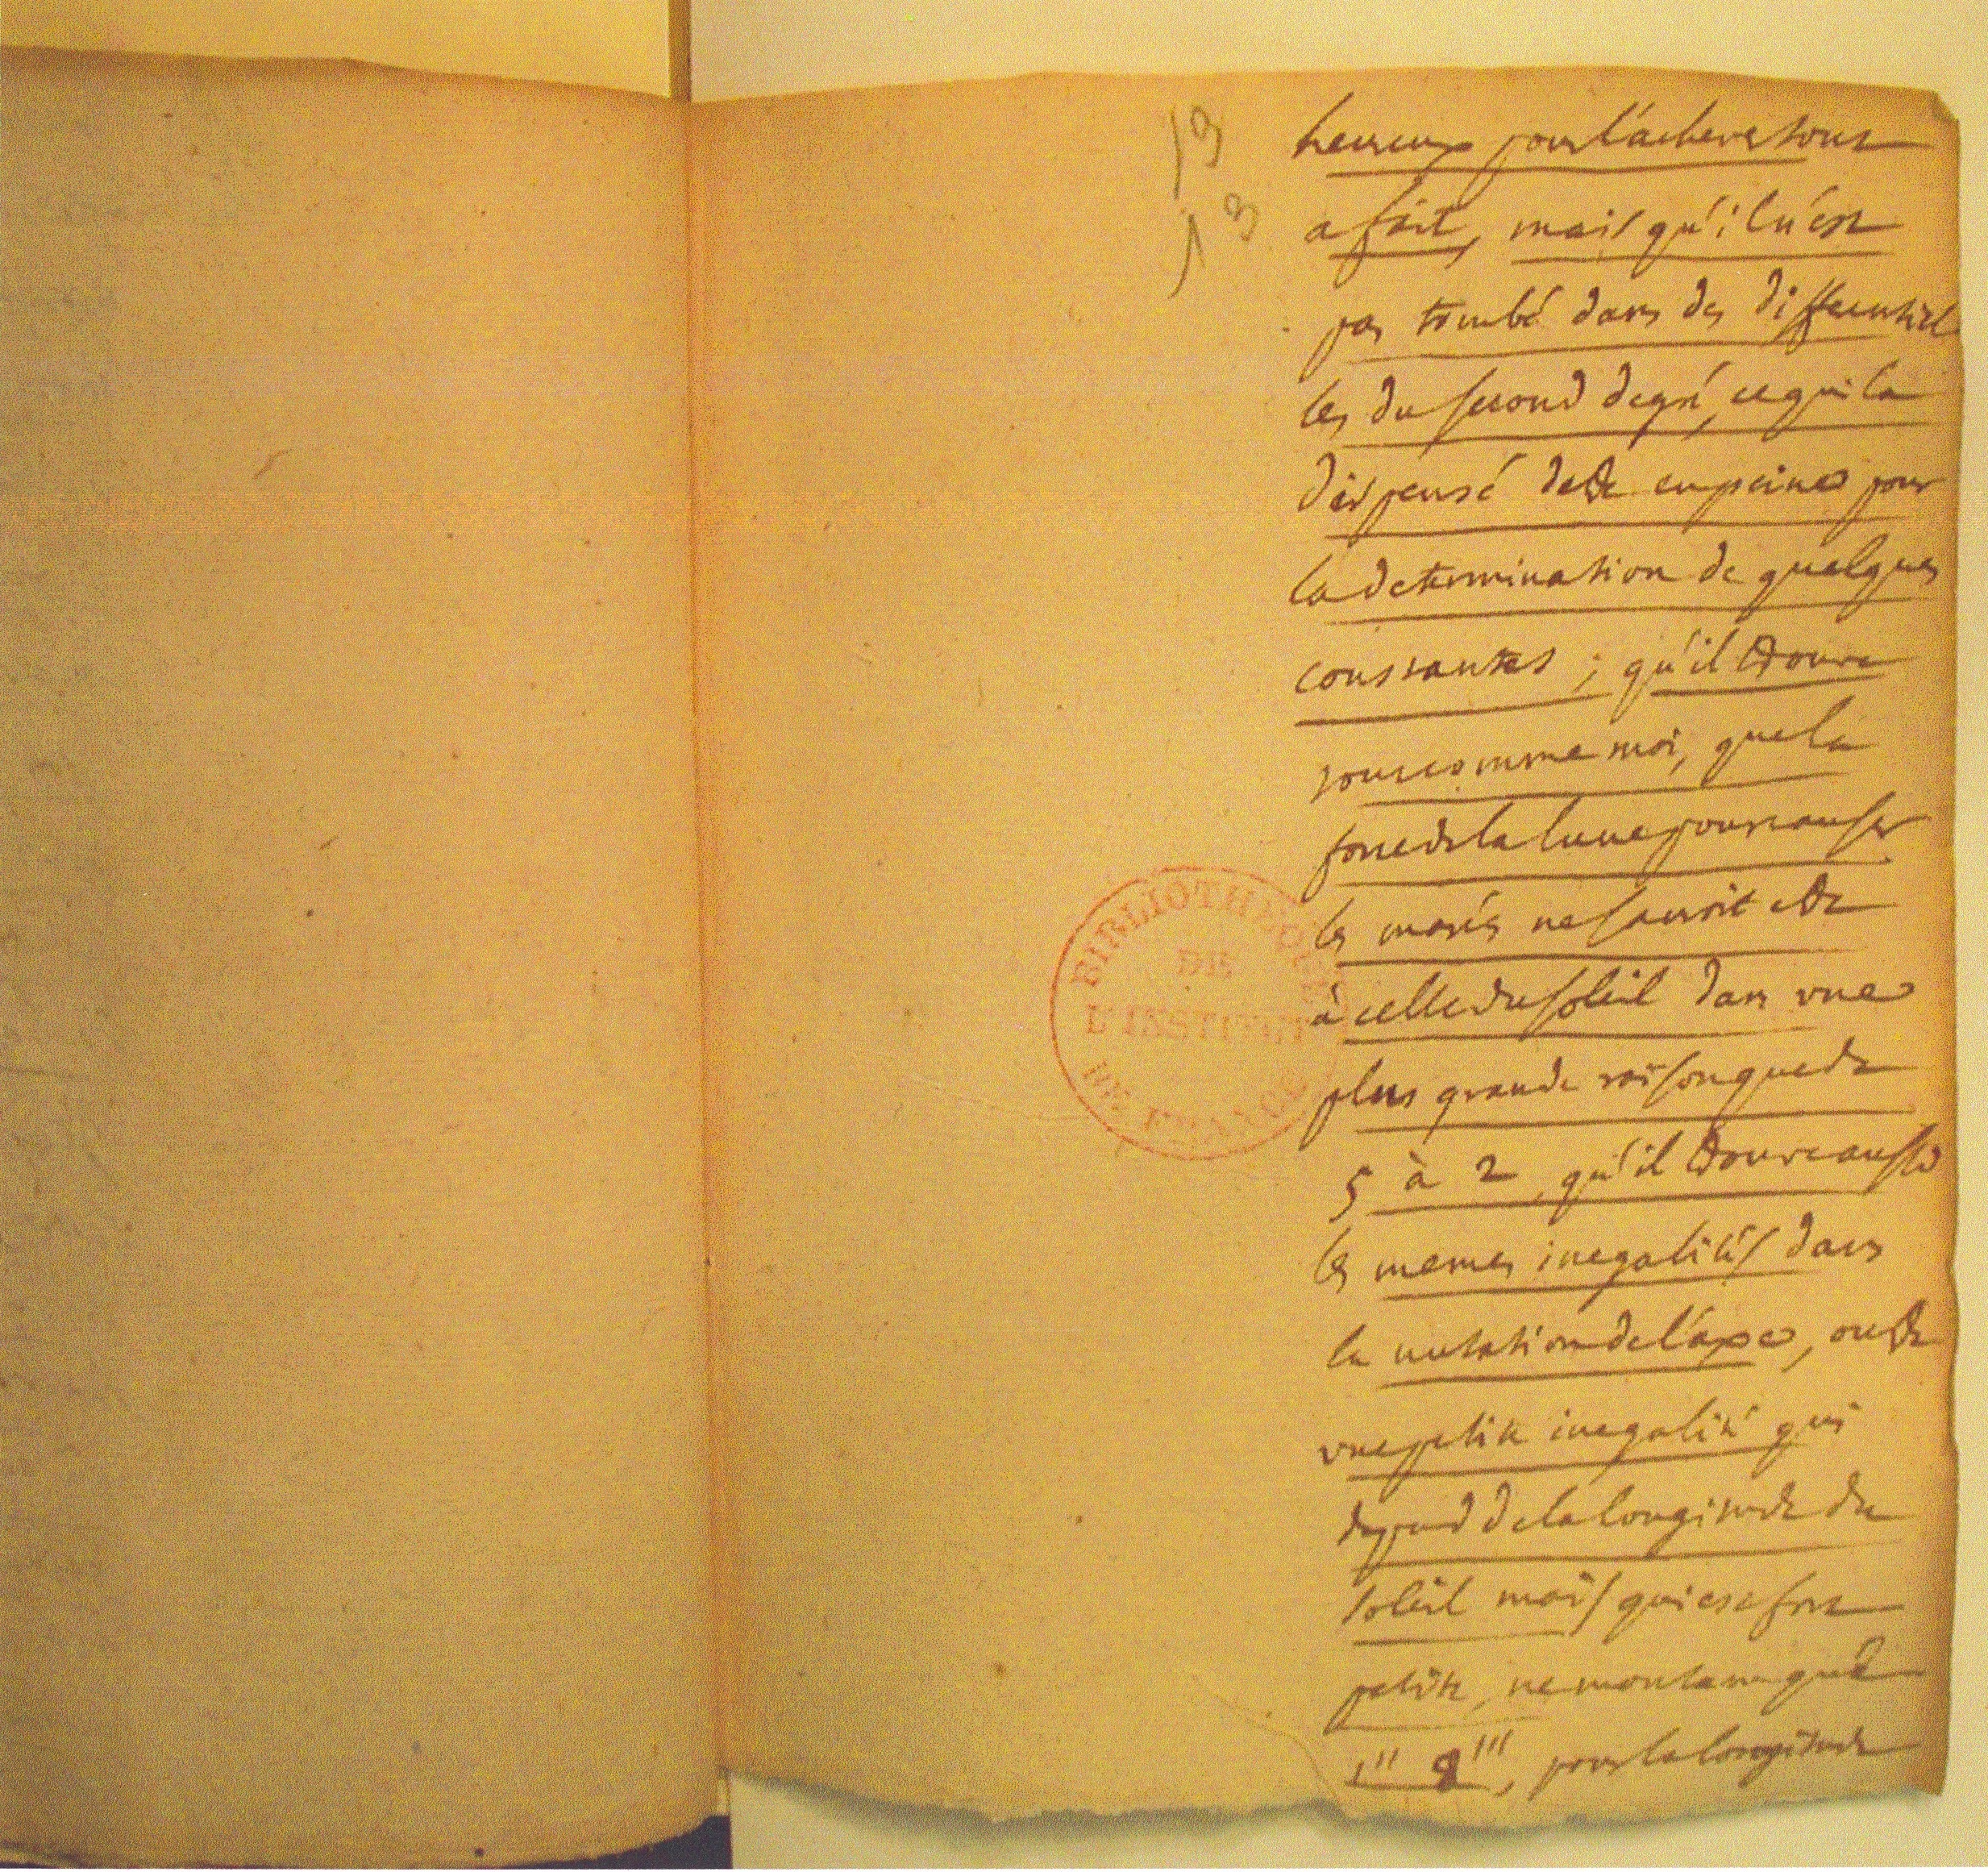 13
13
heureux pour l'achever tout
a fait, mais qu'il n'est
pas tombé dans des differentiel
les du second degré, ce qui l'a
dispensé d'etre en peine pour
la determination de quelques
constantes ; qu'il trouve
tout comme moi, que la
force de la lune pour causer
les marées ne sauroit etre
à celle du soleil dans une
plus grande raison que de
5 à 2, qu'il trouve aussi
les memes inegalités dans
la nutation de l'axe, outre
une petite inegalité qui
depend de la longitude du
soleil mais qui est fort
petite, ne montant qu'à
1'' 8''', pour la longitude
BIBLIOTHEQUE
DE
L'INSTITUT
DE FRANCE